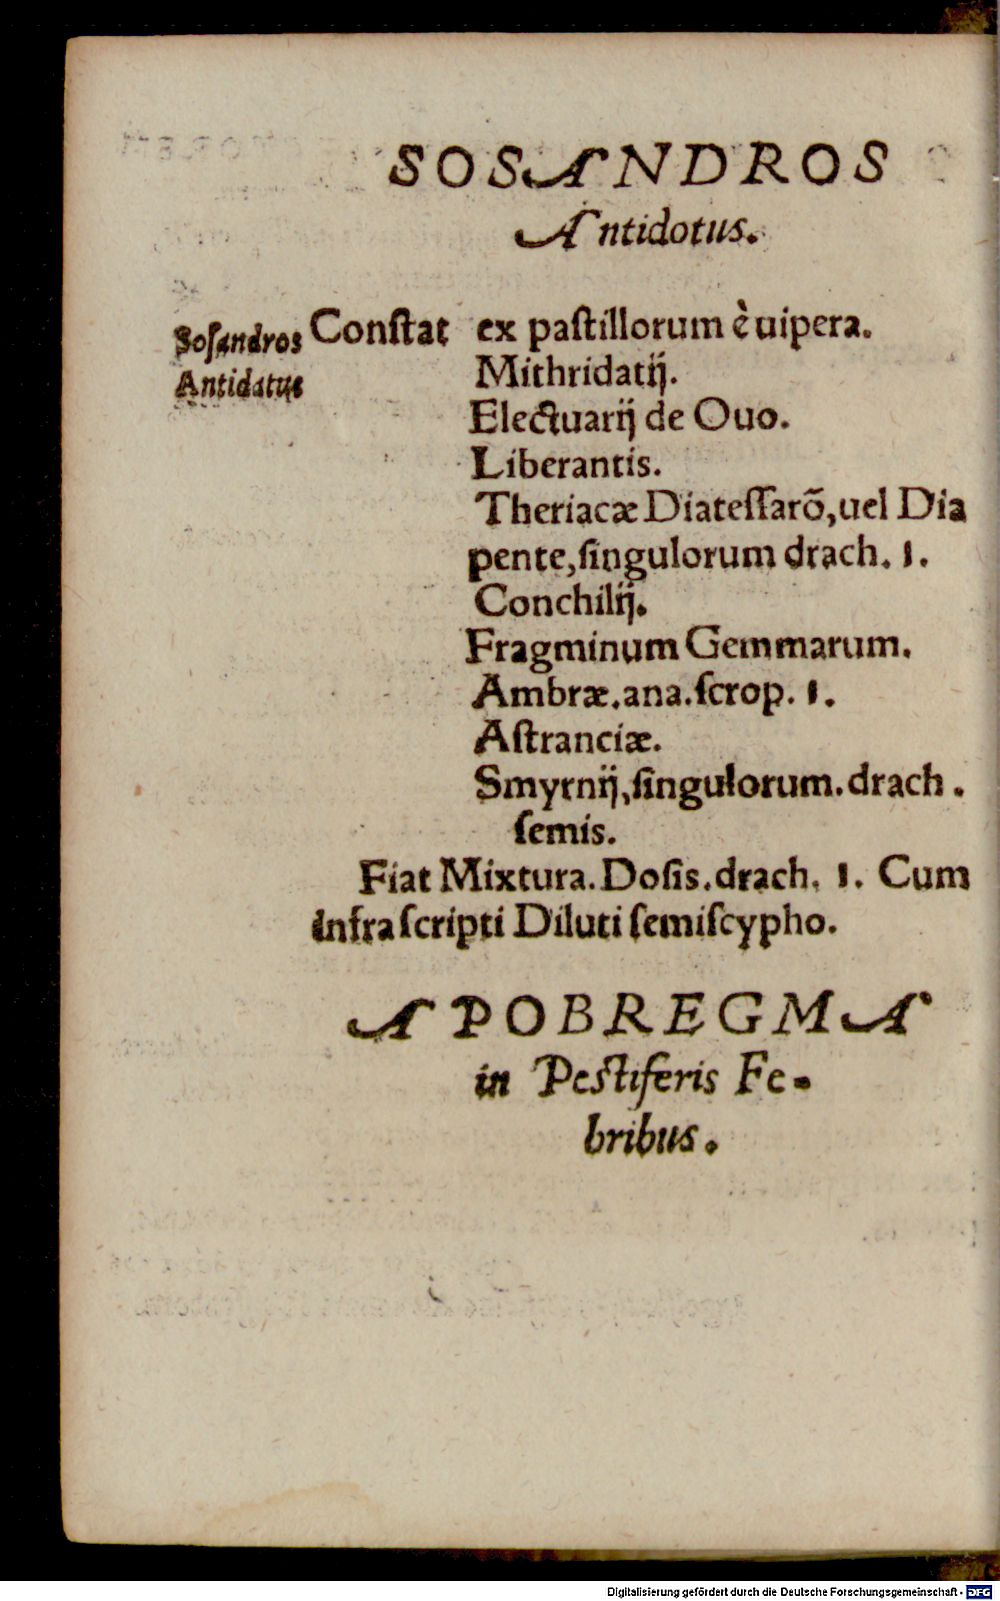 SOSANDROS
Antidotus.
Sosandros
Antidatus
Constat ex pastillorum è uipera.
Mithridatij.
Electuarij de Ouo.
Liberantis.
Theriacæ Diatessarõ, uel Dia
pente, singulorum drach. 1.
Conchilij.
Fragminum Gemmarum.
Ambræ. ana. scrop. 1.
Astranciæ.
Smyrnij, singulorum. drach.
semis.
Fiat Mixtura. Dosis. drach. 1. Cum
infra scripti Diluti semiscypho.
APOBREGMA
in Pestiferis Fe-
bribus.
Digitalisierung gefördert durch die Deutsche Forschungsgemeinschaft - DFG